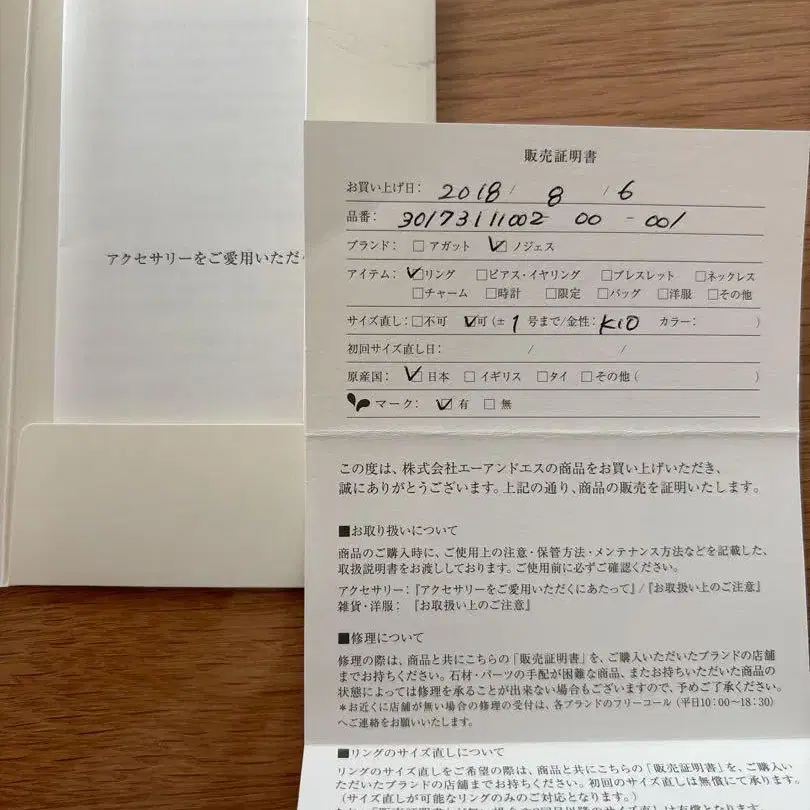 アクセサリーをご愛用いただ
販売証明書
お買い上げ日: 2018 / 8 / 6
品番: 30173111002 00 - 001
ブランド: □ アガット ☑ ノジェス
アイテム: ☑リング □ピアス・イヤリング □ブレスレット □ネックレス
□チャーム □時計 □限定 □バッグ □洋服 □その他
サイズ直し: □不可 ☑可 (± 1 号まで/金性: K10 カラー: )
初回サイズ直し日: / /
原産国: ☑ 日本 □ イギリス □タイ □その他 ( )
マーク: ☑ 有 □ 無
この度は、株式会社エーアンドエスの商品をお買い上げいただき、
誠にありがとうございます。上記の通り、商品の販売を証明いたします。
■お取り扱いについて
商品のご購入時に、ご使用上の注意・保管方法・メンテナンス方法などを記載した、
取扱説明書をお渡ししております。ご使用前に必ずご確認ください。
アクセサリー:『アクセサリーをご愛用いただくにあたって』/『お取扱い上のご注意』
雑貨・洋服: 『お取扱い上のご注意』
■修理について
修理の際は、商品と共にこちらの「販売証明書」を、ご購入いただいたブランドの店舗
までお持ちください。石材・パーツの手配が困難な商品、またお持ちいただいた商品の
状態によっては修理を承ることが出来ない場合もございますので、予めご了承ください。
*お近くに店舗が無い場合の修理の受付は、各ブランドのフリーコール (平日10:00〜18:30)
へご連絡をお願いいたします。
■リングのサイズ直しについて
リングのサイズ直しをご希望の際は、商品と共にこちらの「販売証明書」を、ご購入い
ただいたブランドの店舗までお持ちください。初回のサイズ直しは無償にて承ります。
(サイズ直しが可能なリングのみのご対応となります。)